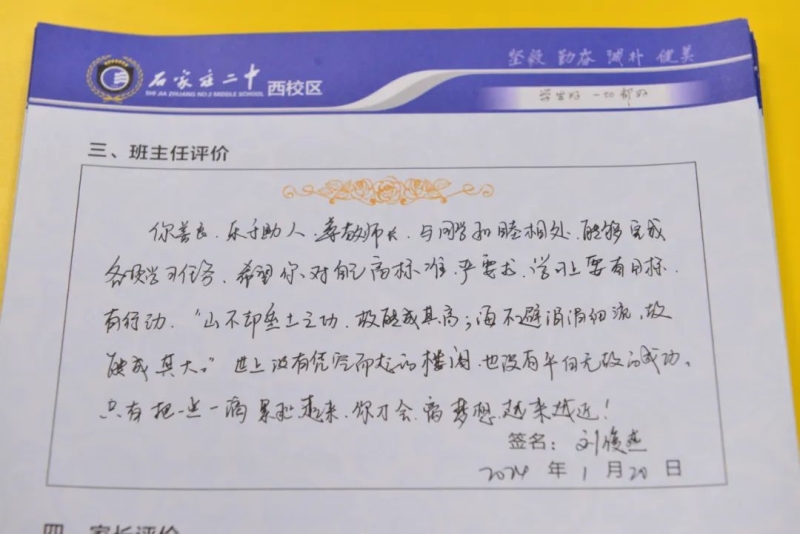 石家庄二中 西校区
SHI JIA ZHUANG NO.2 MIDDLE SCHOOL
坚毅 勤奋 诚朴 健美
学生好 一切都好
三、班主任评价
你善良、乐于助人、尊敬师长、与同学和睦相处、能够完成
各项学习任务。希望你对自己高标准、严要求、学习上要有目标、
有行动。“山不却垒土之功、故能成其高；海不避涓涓细流、故
能成其大。”世上没有凭空而起的楼阁、也没有平白无故的成功。
只有把一点一滴累积起来、你才会离梦想越来越近！
签名：刘俊燕
2024 年 1 月 20 日
四、家长评价